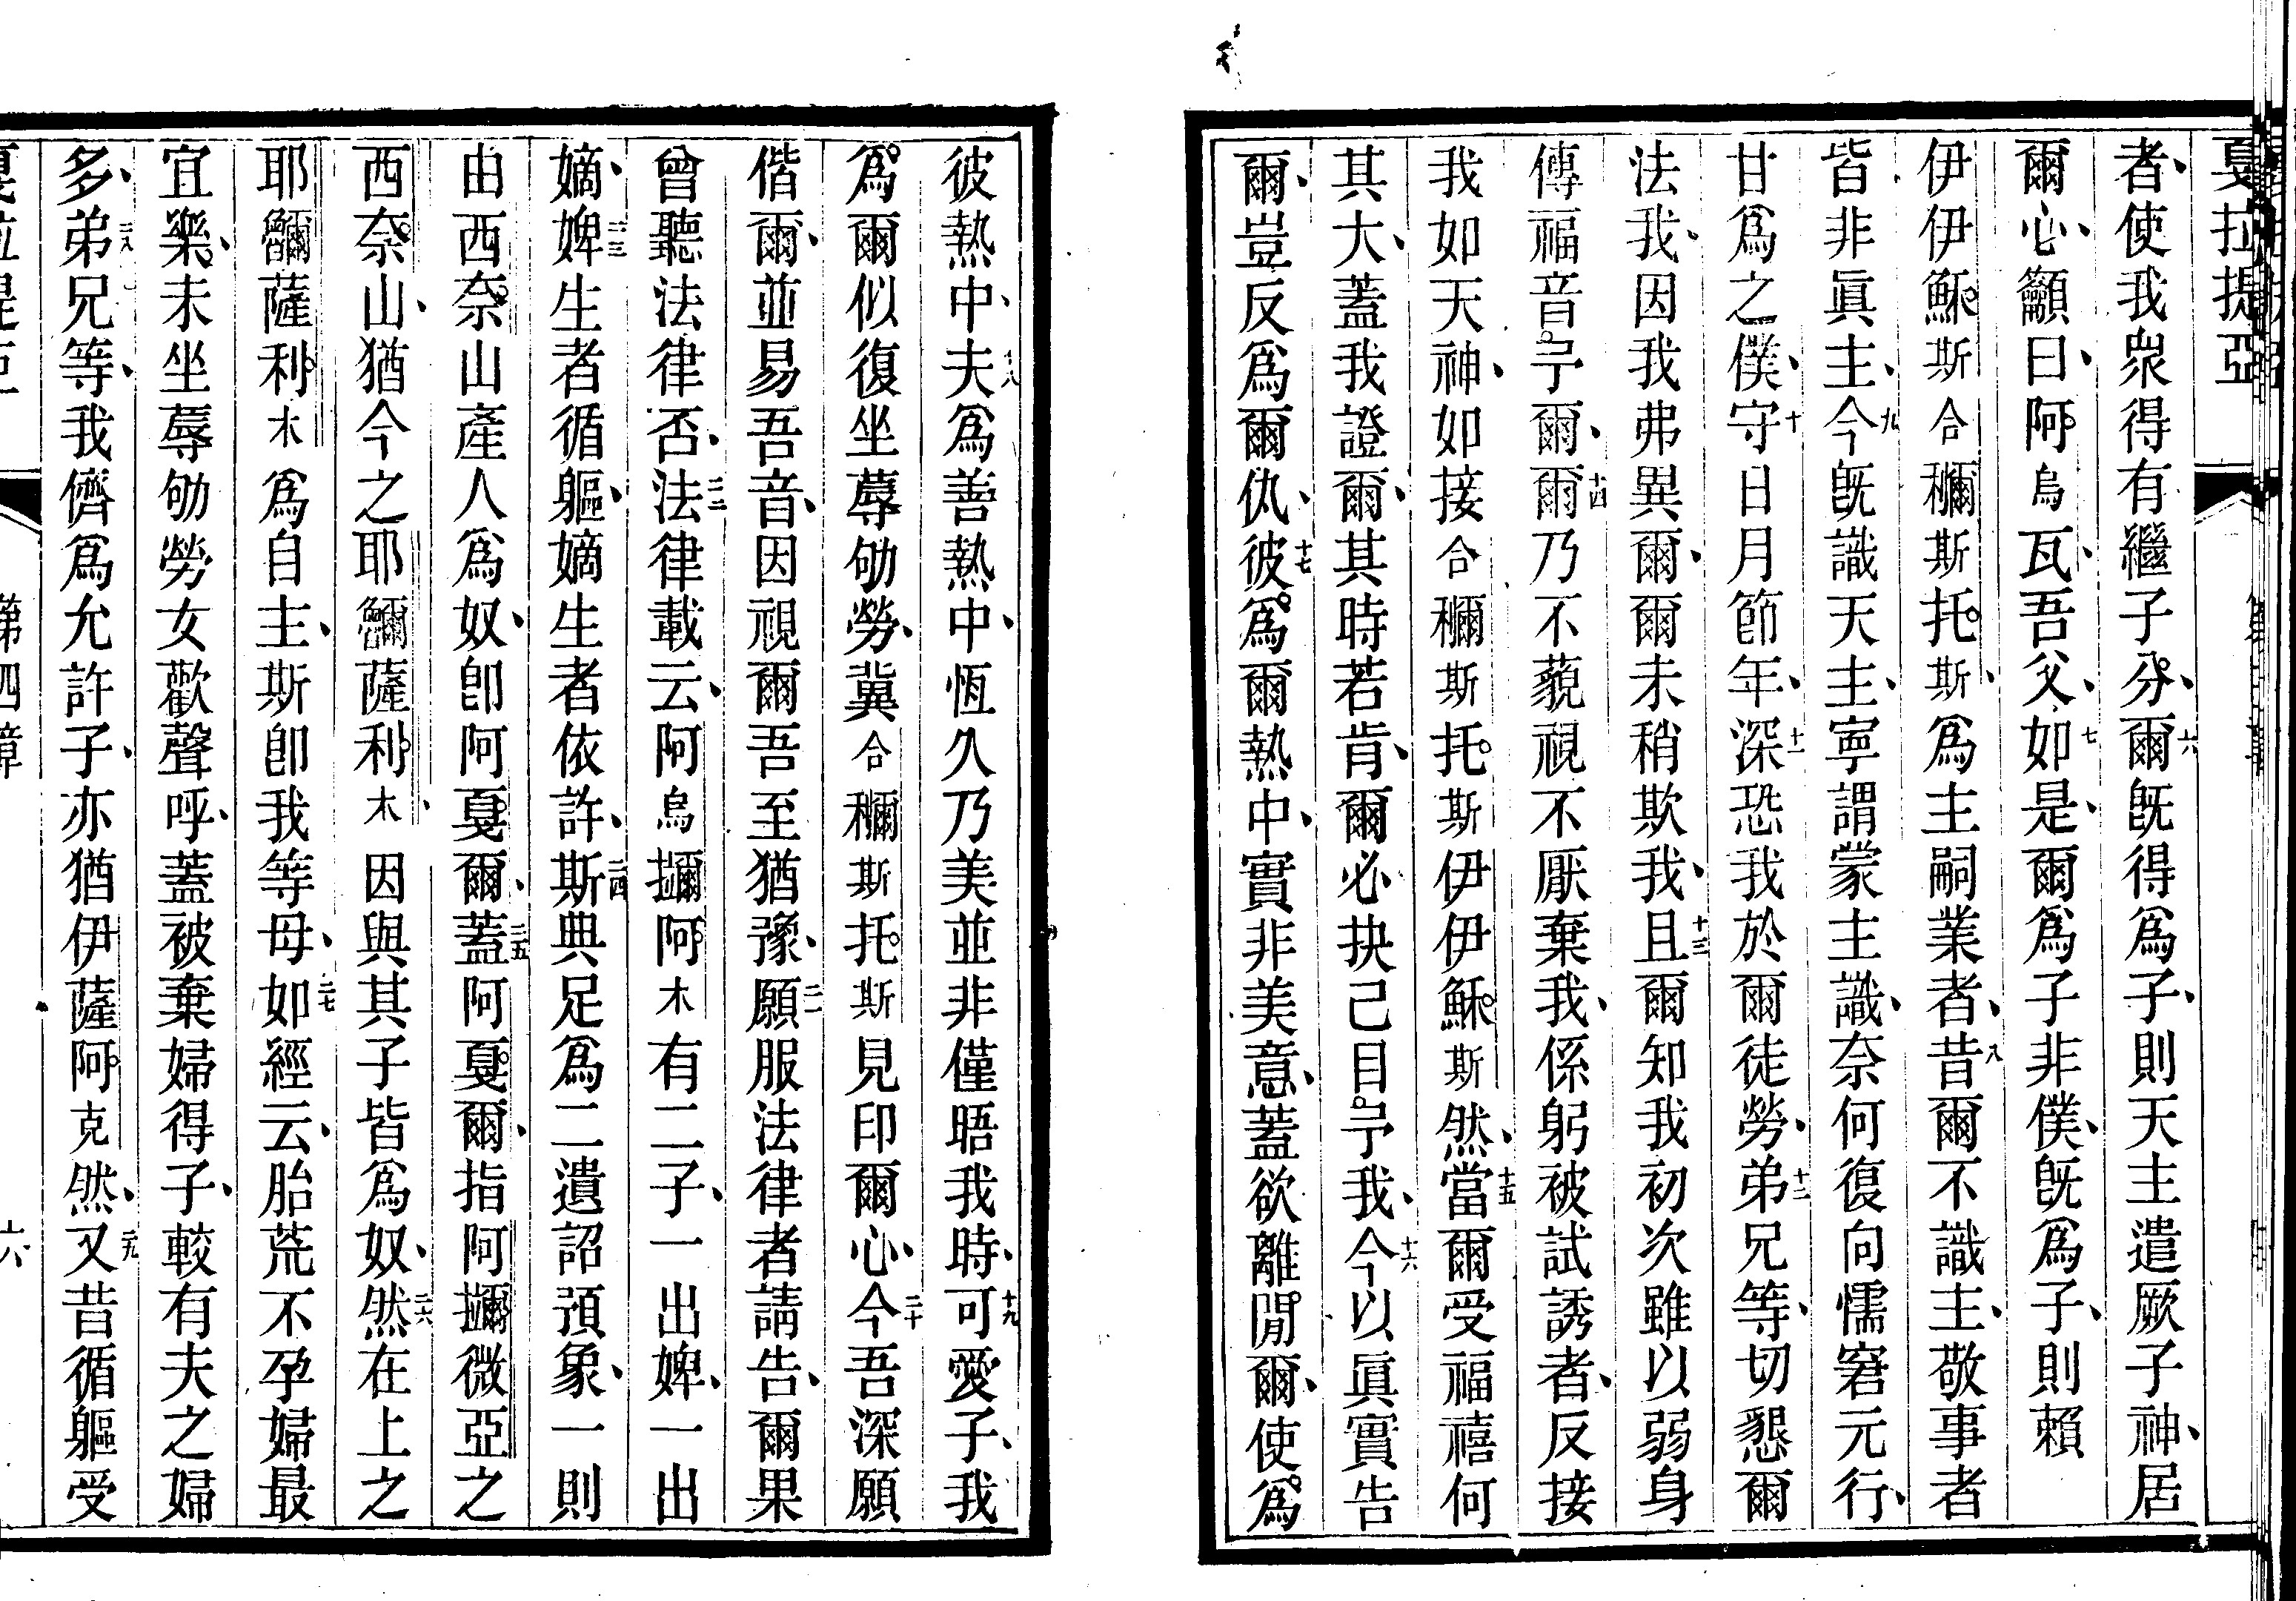 戛拉提亞
者、使我衆得有繼子分、六爾旣得爲子、則天主遣厥子神、居
爾心、籲曰、阿烏瓦、吾父、七如是、爾爲子非僕、旣爲子、則賴
伊伊穌斯合穪斯托斯、爲主嗣業者、八昔爾不識主、敬事者
皆非眞主、九今旣識天主、寧謂蒙主識、奈何復向懦窘元行、
甘爲之僕、十守日月節年、十一深恐我於爾徒勞、十二弟兄等、切懇爾
法我、因我弗異爾、爾未稍欺我、十三且爾知我初次雖以弱身
傳福音。予爾、十四爾乃不藐視不厭棄我、係躬被試誘者、反接
我如天神、如接合穪斯托斯伊伊穌斯然、十五當爾受福禧何
其大、蓋我證爾、其時若肯、爾必抉己目。予我、十六今以眞實告
爾、豈反爲爾仇、十七彼爲爾熱中、實非美意、蓋欲離閒爾、使爲
彼熱中、十八夫爲善熱中、恆久乃美並非僅晤我時、十九可愛子、我
爲爾似復坐蓐劬勞、冀合穪斯托斯見印爾心、二十今吾深願
偕爾、並易吾音、因視爾吾至猶豫、二一願服法律者請告、爾果
曾聽法律否、二二法律載云、阿烏𢹂阿木有二子、一出婢、一出
嫡、二三婢生者循軀、嫡生者依許、二四斯典足爲二遺詔預象、一則
由西奈山產人爲奴、卽阿戛爾、二五蓋阿戛爾、指阿𢹂微亞之
西奈山、猶今之耶薩利木、因與其子皆爲奴、二六然在上之
耶薩利木爲自主、斯卽我等母、二七如經云、胎荒不孕婦最
宜樂、未坐蓐劬勞女歡聲呼、蓋被棄婦得子、較有夫之婦
多、二八弟兄等、我儕爲允許子、亦猶伊薩阿克然、二九又昔循軀受
戛拉提亞 第四章 六